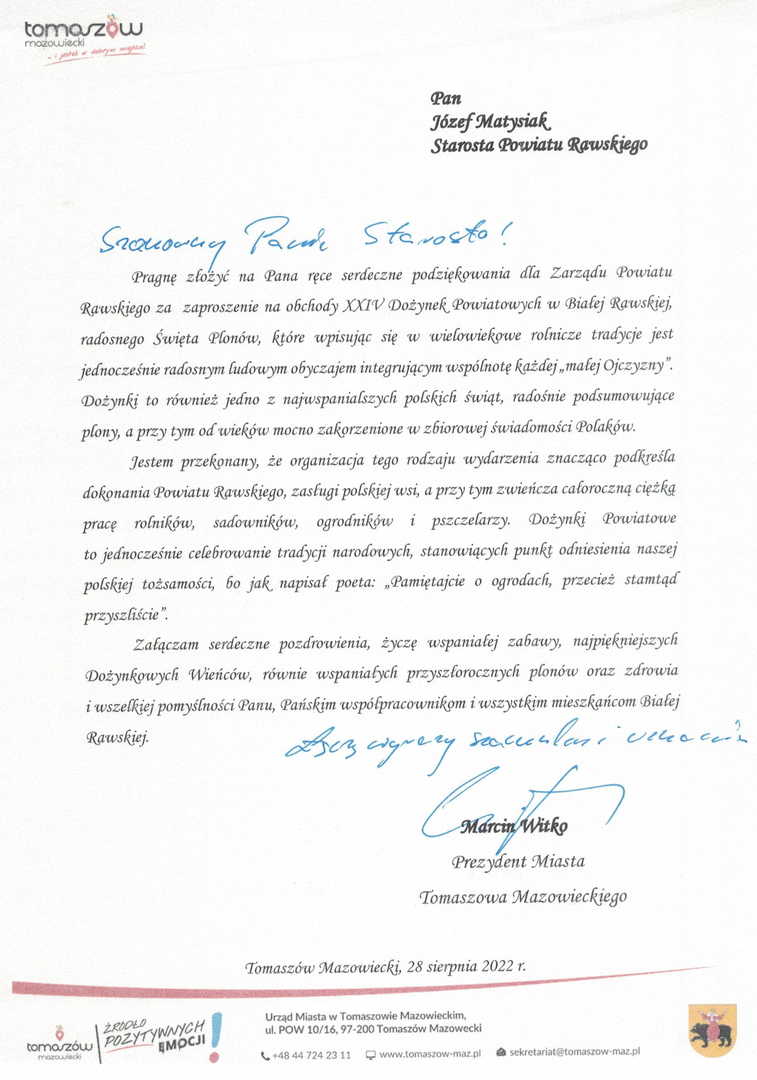 tomaszów
mazowiecki
- i jesteś w dobrym miejscu!
Pan
Józef Matysiak
Starosta Powiatu Rawskiego
Szanowny Panie Starosto!
Pragnę złożyć na Pana ręce serdeczne podziękowania dla Zarządu Powiatu
Rawskiego za zaproszenie na obchody XXIV Dożynek Powiatowych w Białej Rawskiej,
radosnego Święta Plonów, które wpisując się w wielowiekowe rolnicze tradycje jest
jednocześnie radosnym ludowym obyczajem integrującym wspólnotę każdej „małej Ojczyzny".
Dożynki to również jedno z najwspanialszych polskich świąt, radośnie podsumowujące
plony, a przy tym od wieków mocno zakorzenione w zbiorowej świadomości Polaków.
Jestem przekonany, że organizacja tego rodzaju wydarzenia znacząco podkreśla
dokonania Powiatu Rawskiego, zasługi polskiej wsi, a przy tym zwieńcza całoroczną ciężką
pracę rolników, sadowników, ogrodników i pszczelarzy. Dożynki Powiatowe
to jednocześnie celebrowanie tradycji narodowych, stanowiących punkt odniesienia naszej
polskiej tożsamości, bo jak napisał poeta: „Pamiętajcie o ogrodach, przecież stamtąd
przyszliście".
Załączam serdeczne pozdrowienia, życzę wspaniałej zabawy, najpiękniejszych
Dożynkowych Wieńców, równie wspaniałych przyszłorocznych plonów oraz zdrowia
i wszelkiej pomyślności Panu, Pańskim współpracownikom i wszystkim mieszkańcom Białej
Rawskiej.
Łączę wyrazy szacunku i uznania
Marcin Witko
Prezydent Miasta
Tomaszowa Mazowieckiego
Tomaszów Mazowiecki, 28 sierpnia 2022 r.
tomaszów
mazowiecki
ŹRÓDŁO
POZYTYWNYCH
EMOCJI
!
Urząd Miasta w Tomaszowie Mazowieckim,
ul. POW 10/16, 97-200 Tomaszów Mazowecki
+48 44 724 23 11 www.tomaszow-maz.pl sekretariat@tomaszow-maz.pl